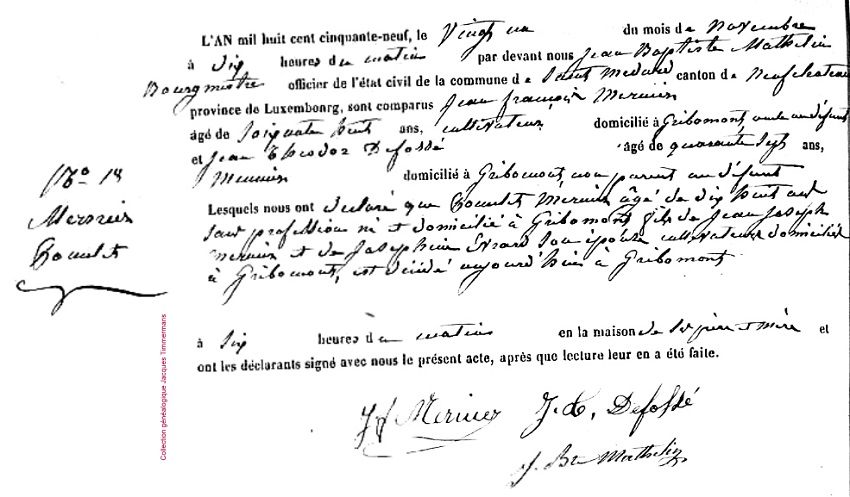 L'AN mil huit cent cinquante-neuf, le Vingt un du mois de novembre
à dix heures du matin par devant nous Jean Baptiste Mathelin
Bourgmestre officier de l'état civil de la commune de Saint Medard canton de Neufchateau
province de Luxembourg, sont comparus Jean françois Mernier
âgé de soixante huit ans, cultivateur domicilié à Gribomont oncle au défunt
et Jean Theodor Defossé âgé de quarante sept ans,
Menuisier domicilié à Gribomont, non parent au défunt
N° 18
Mernier
Lesquels nous ont declaré que Mernier âgé de dix huit ans
sans profession né et domicilié à Gribomont fils de Jean Joseph
Mernier et de Josephine Evrard son épouse cultivateurs domiciliés
à Gribomont, est décédé aujourd'hui à Gribomont
à six heures du matin en la maison de ses père et mère et
ont les déclarants signé avec nous le présent acte, après que lecture leur en a été faite.
Jf Mernier J. T. Defossé
J. Bte Mathelin
Collection généalogique Jacques Timmermans